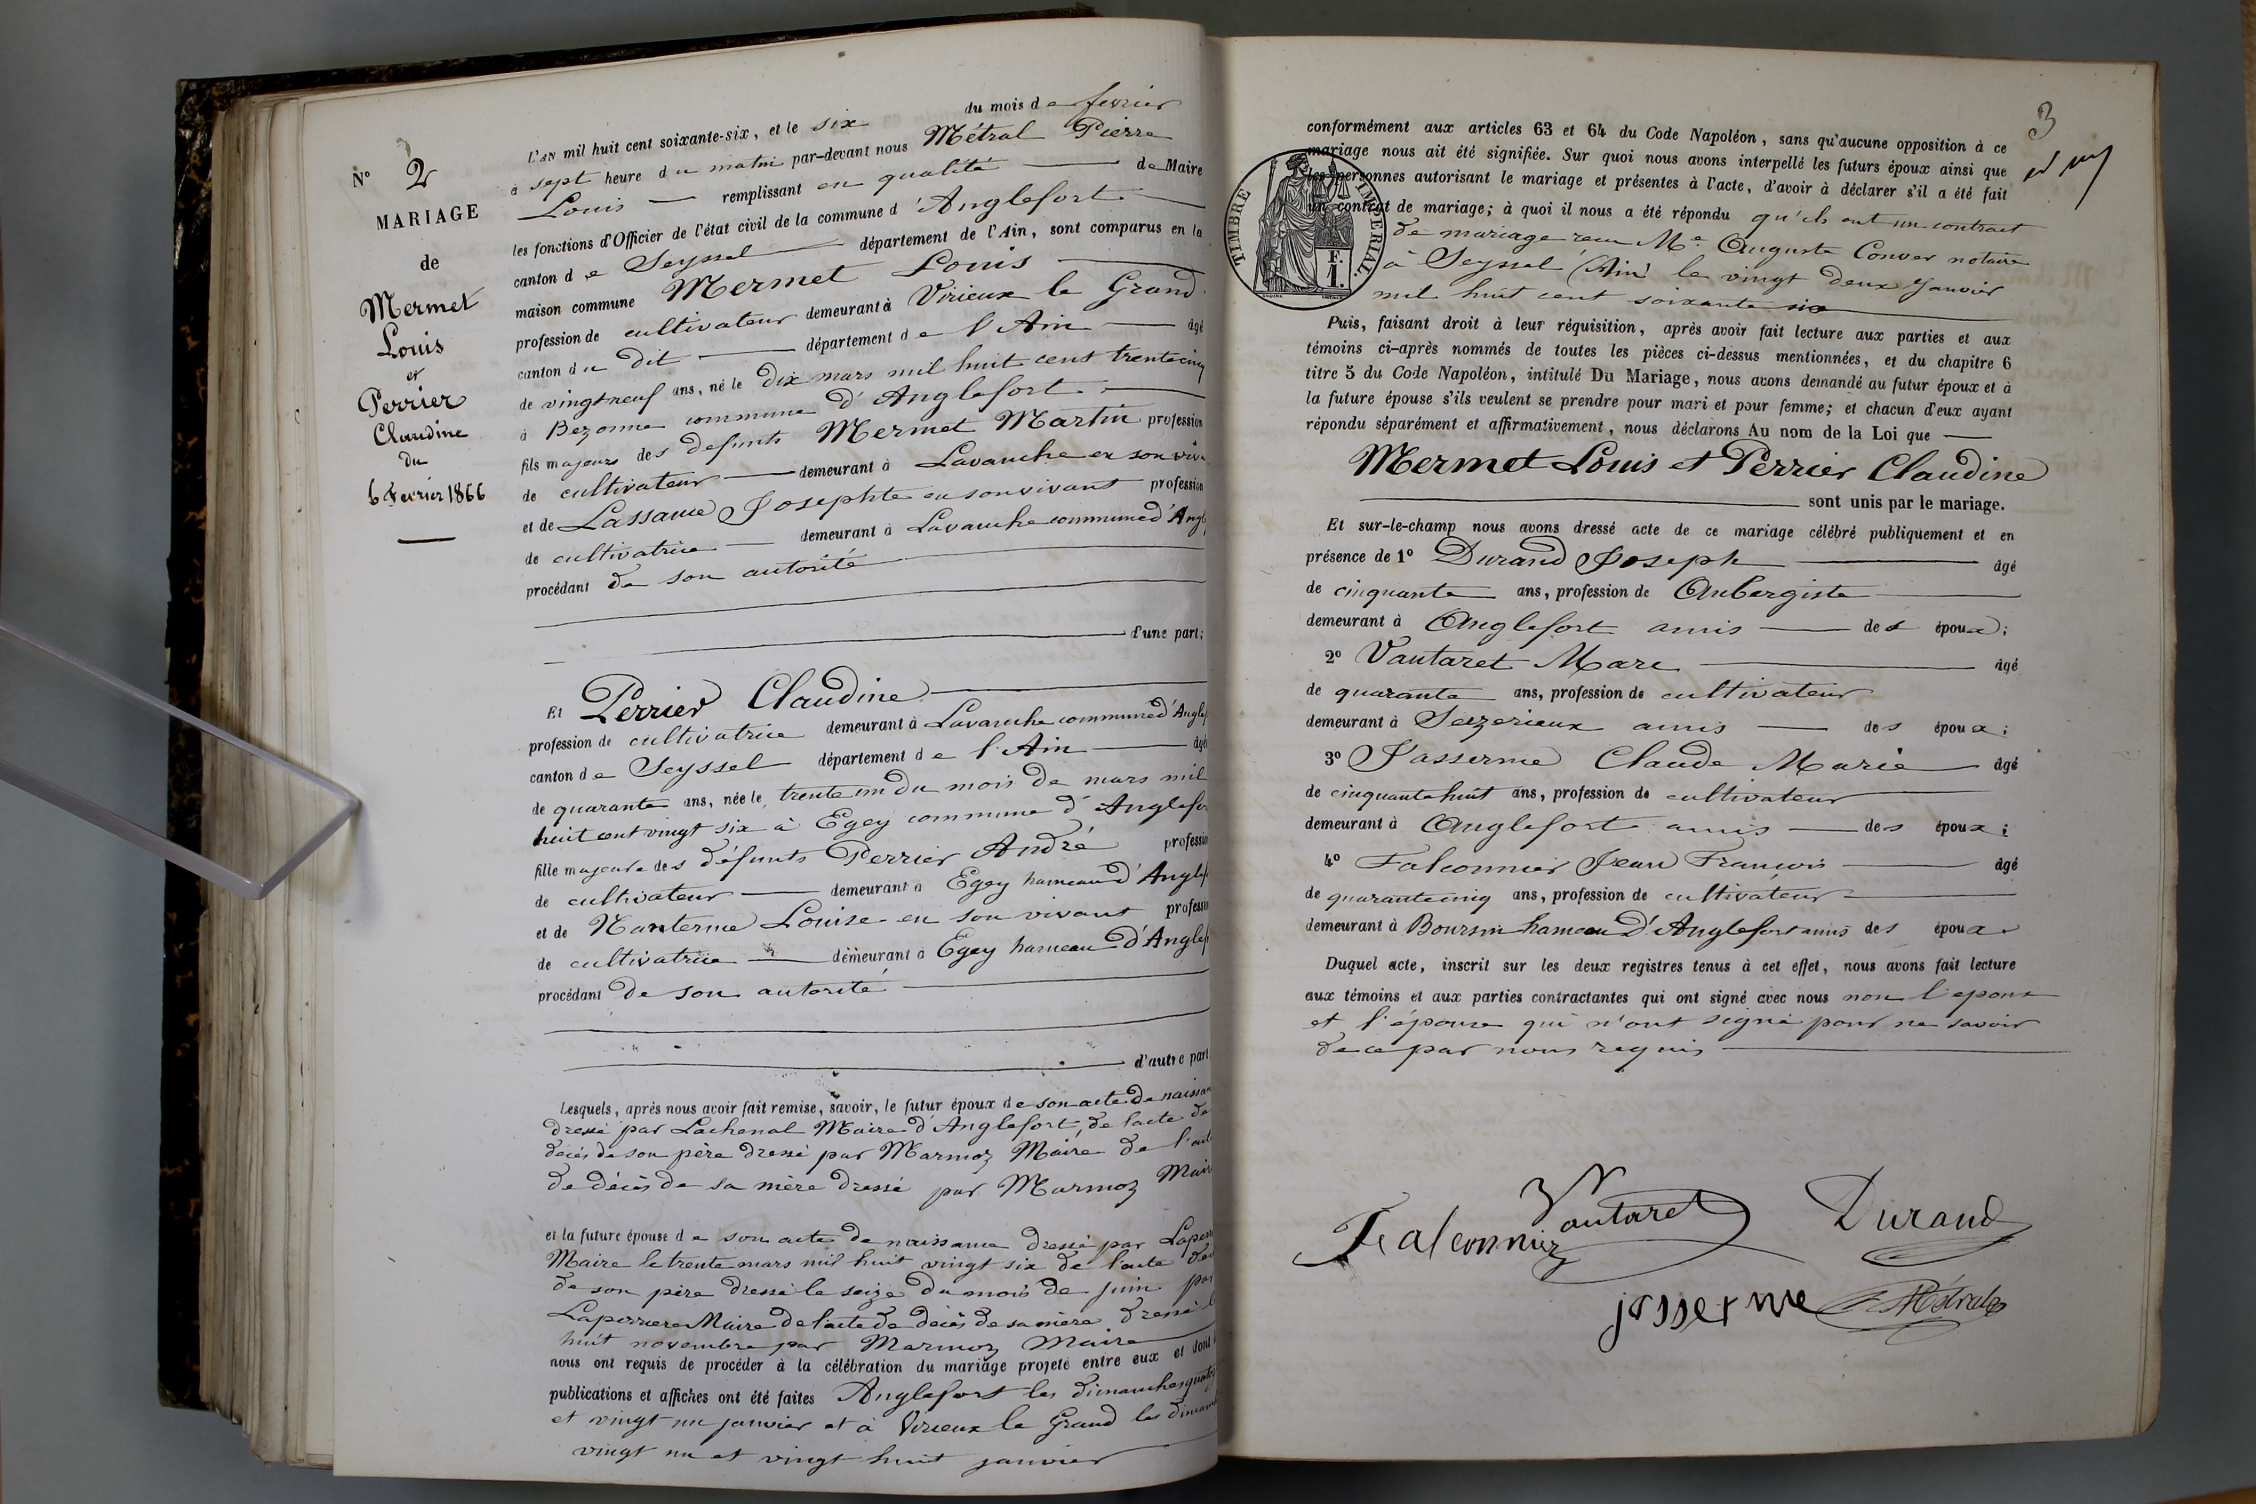 N° 2
MARIAGE
de
Mermet
Louis
et
Perrier
Claudine
du
6 fevrier 1866
L'AN mil huit cent soixante-six, et le six du mois de fevrier
à sept heure du matin par-devant nous Métral Pierre
Louis remplissant en qualité de Maire
les fonctions d'Officier de l'état civil de la commune d'Anglefort
canton de Seyssel département de l'Ain, sont comparus en la
maison commune Mermet Louis
profession de cultivateur demeurant à Virieux le Grand
canton du dit département de l'Ain âgé
de vingt neuf ans, né le dix mars mil huit cent trente cinq
à Bezonne commune d'Anglefort
fils majeur des defunts Mermet Martin profession
de cultivateur demeurant à Lavanche en son viva
et de Lassame Josephte en son vivant profession
de cultivatrice demeurant à Lavanche commune d'Angl
procédant de son autorité
d'une part;
Et Perrier Claudine
profession de cultivatrice demeurant à Lavanche commune d'Anglef
canton de Seyssel département de l'Ain âgé
de quarante ans, née le trente un du mois de mars mil
huit cent vingt six à Egey commune d'Anglefor
fille majeure des défunts Perrier André professio
de cultivateur demeurant à Egey hameau d'Anglef
et de Nanterme Louise en son vivant professio
de cultivatrice demeurant à Egey hameau d'Anglef
procédant de son autorité
d'autre part
Lesquels, après nous avoir fait remise, savoir, le futur époux de son acte de naissan
dressé par Lachenal Maire d'Anglefort, de l'acte de
décès de son père dressé par Marmoz Maire de l'acte
de décès de sa mère dressé par Marmoz Maire
et la future épouse de son acte de naissance dressé par Laperr
Maire le trente mars mil huit vingt six de l'acte
de son père dressé le seize du mois de juin par
Laperriere Maire de l'acte de décès de sa mère dressé le
huit novembre par Marmoz Maire
nous ont requis de procéder à la célébration du mariage projeté entre eux et dont
publications et affiches ont été faites Anglefort les dimanches quato
et vingt un janvier et à Virieux le Grand les diman
vingt un et vingt huit janvier
3
conformément aux articles 63 et 64 du Code Napoléon, sans qu'aucune opposition à ce
mariage nous ait été signifiée. Sur quoi nous avons interpellé les futurs époux ainsi que
les personnes autorisant le mariage et présentes à l'acte, d'avoir à déclarer s'il a été fait
un contrat de mariage; à quoi il nous a été répondu qu'ils ont un contract
de mariage reçu Me Auguste Conver notaire
à Seyssel (Ain) le vingt deux Janvier
mil huit cent soixante six
TIMBRE IMPERIAL.
1 F.
Puis, faisant droit à leur réquisition, après avoir fait lecture aux parties et aux
témoins ci-après nommés de toutes les pièces ci-dessus mentionnées, et du chapitre 6
titre 5 du Code Napoléon, intitulé Du Mariage, nous avons demandé au futur époux et à
la future épouse s'ils veulent se prendre pour mari et pour femme; et chacun d'eux ayant
répondu séparément et affirmativement, nous déclarons Au nom de la Loi que
Mermet Louis et Perrier Claudine
sont unis par le mariage.
Et sur-le-champ nous avons dressé acte de ce mariage célébré publiquement et en
présence de 1° Durand Joseph âgé
de cinquante ans, profession de Aubergiste
demeurant à Anglefort amis des époux;
2° Vautaret Marc âgé
de quarante ans, profession de cultivateur
demeurant à Seizerieux amis des époux;
3° Jasserme Claude Marie âgé
de cinquante huit ans, profession de cultivateur
demeurant à Anglefort amis des époux;
4° Falconnier Jean François âgé
de quarante cinq ans, profession de cultivateur
demeurant à Boursin hameau d'Anglefort amis des époux
Duquel acte, inscrit sur les deux registres tenus à cet effet, nous avons fait lecture
aux témoins et aux parties contractantes qui ont signé avec nous non l'epoux
et l'épouse qui n'ont signé pour ne savoir
de ce par nous requis
Falconnier Vautaret Durand
jasserme Métral